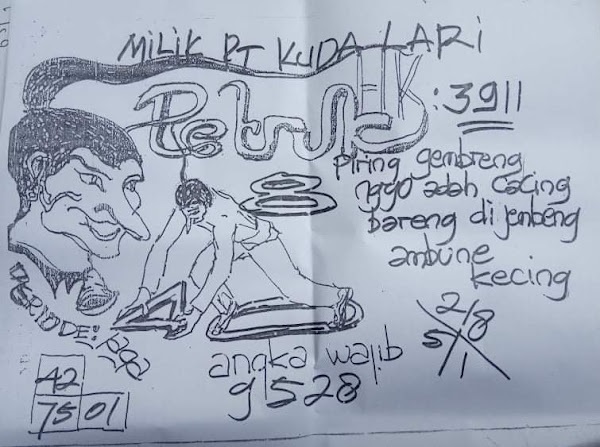 MILIK PT KUDA LARI
Petruk
HK : 3911
Piring gembreng
nggo adah cacing
bareng di jembeng
ambune
kecing
PERIODE: jaga
42
75 01
angka wajib
9 528
2/8
5 1